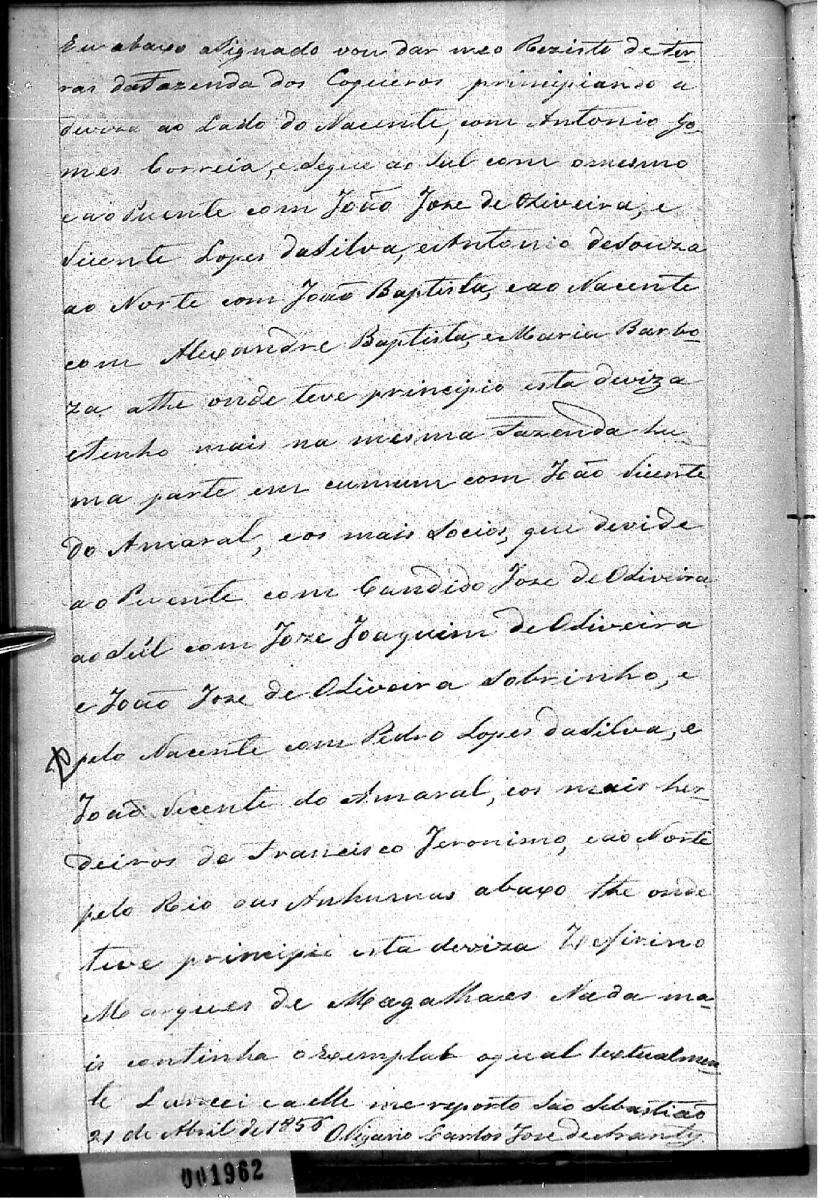 Eu abaxo asignado vou dar meo Rezisto de ter-
ras da Fazenda dos Coqueiros principiando a
deviza ao Lado do Nacente, com Antonio Go-
mes Correia, e segue ao Sul com o mesmo
e ao Puente com João Joze de Oliveira, e
Vicente Lopes da Silva, e Antonio de Souza
ao Norte com João Baptista, e ao Nacente
com Alexandre Baptista, e Maria Barbo-
za athe onde teve principio esta deviza
e tenho mais na mesma Fazenda hu-
ma parte em cumum com João Vicente
do Amaral, e os mais Socios, que devide
ao Puente com Candido Joze de Oliveira
ao Súl com Joze Joaquim de Oliveira
e João Joze de Oliveira Sobrinho, e
pelo Nacente com Pedro Lopes da Silva, e
João Vicente do Amaral, e os mais her-
deiros de Francisco Jeronimo, e ao Norte
pelo Rio das Anhumas abaxo the onde
teve principio esta deviza Zefirino
Marques de Magalhaes Nada ma-
is continha o exemplar o qual textualmen-
te Lancei e a elle me reporto São Sebastião
21 de Abril de 1856 Carlos Joze de
001962